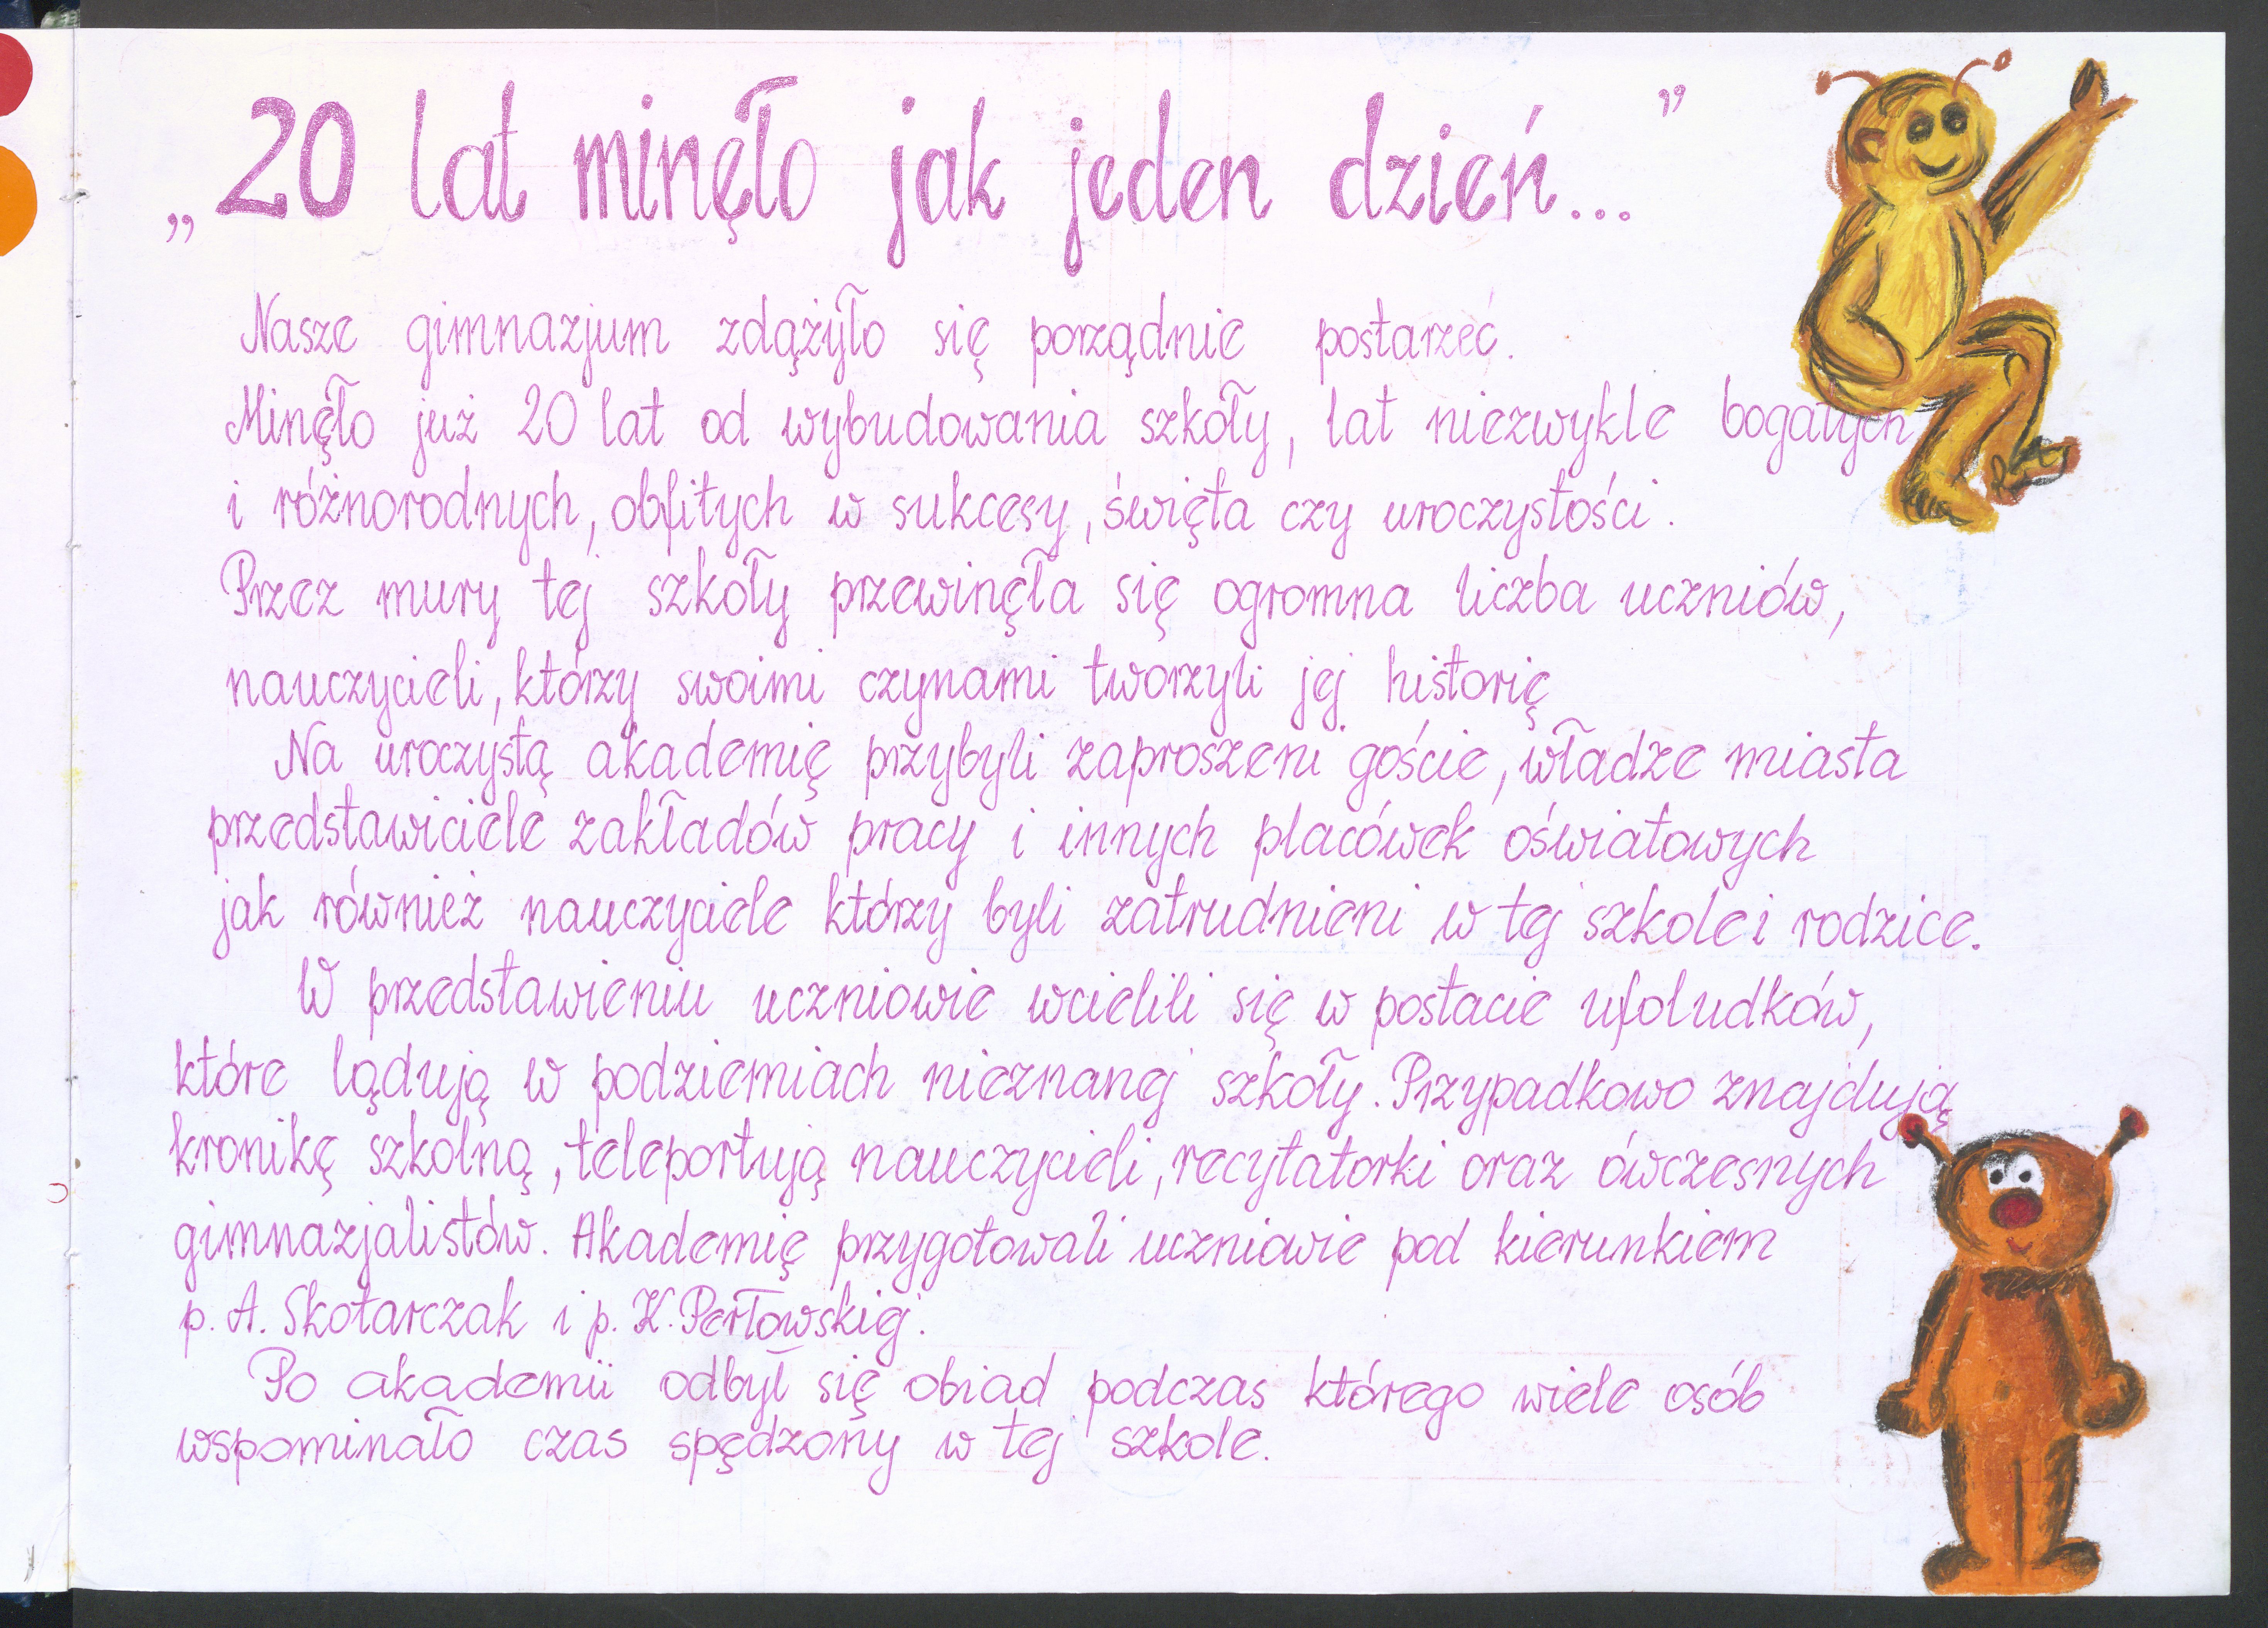 „20 lat minęło jak jeden dzień...”
Nasze gimnazjum zdążyło się porządnie postarzeć.
Minęło już 20 lat od wybudowania szkoły, lat niezwykle bogatych
i różnorodnych, obfitych w sukcesy, święta czy uroczystości.
Przez mury tej szkoły przewinęła się ogromna liczba uczniów,
nauczycieli, którzy swoimi czynami tworzyli jej historię
Na uroczystą akademię przybyli zaproszeni goście, władze miasta
przedstawiciele zakładów pracy i innych placówek oświatowych
jak również nauczyciele którzy byli zatrudnieni w tej szkole i rodzice.
W przedstawieniu uczniowie wcielili się w postacie ufoludków,
które lądują w podziemiach nieznanej szkoły. Przypadkowo znajdują
kronikę szkolną, teleportują nauczycieli, recytatorki oraz ówczesnych
gimnazjalistów. Akademię przygotowali uczniowie pod kierunkiem
p. A. Skotarczak i p. K. Perłowskiej.
Po akademii odbył się obiad podczas którego wiele osób
wspominało czas spędzony w tej szkole.